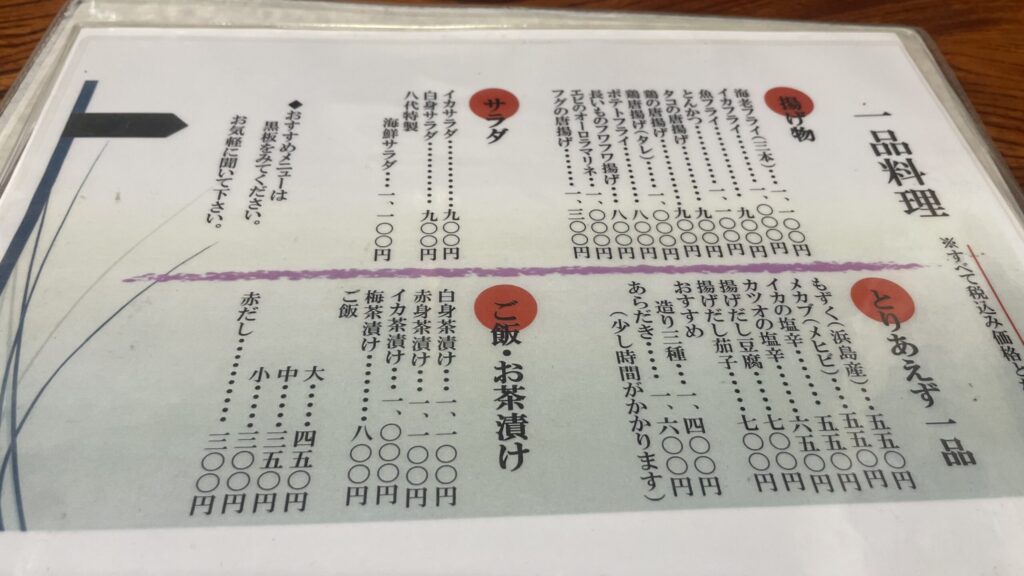 一品料理
※すべて税込み価格と
揚げ物
海老フライ(三本)…一、一〇〇円
イカフライ………一、〇〇〇円
魚フライ…………九〇〇円
とんかつ…………一、一〇〇円
タコの唐揚げ……一、〇〇〇円
鶏の唐揚げ………九〇〇円
鶏唐揚げ(タレ)…九〇〇円
ポテトフライ……八〇〇円
長いものフワフワ揚げ…八〇〇円
エビのオーロラマリネ…一、〇〇〇円
フグの唐揚げ……一、三〇〇円
サラダ
イカサラダ………九〇〇円
白身サラダ………九〇〇円
八代特製
海鮮サラダ…一、一〇〇円
◆おすすめメニューは
黒板をみてください。
お気軽に聞いて下さい。
とりあえず一品
もずく(浜島産)…五五〇円
メカブ(メヒビ)…五五〇円
イカの塩辛………五五〇円
カツオの塩辛……六五〇円
揚げだし豆腐……七〇〇円
揚げだし茄子……七〇〇円
おすすめ
造り三種…一、四〇〇円
あらだき………一、六〇〇円
(少し時間がかかります)
ご飯・お茶漬け
白身茶漬け……一、一〇〇円
赤身茶漬け……一、一〇〇円
イカ茶漬け……一、〇〇〇円
梅茶漬け………八〇〇円
ご飯
大……四五〇円
中……三五〇円
小……三〇〇円
赤だし…………三〇〇円